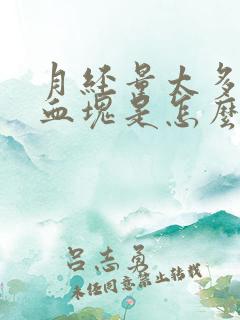 月经量太多
血块是怎么
吕志勇
未经同意禁止转载